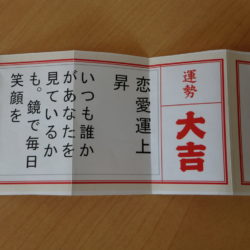 運勢
大吉
恋愛運上
昇
いつも誰か
があなたを
見ているか
も。鏡で毎日
笑顔を